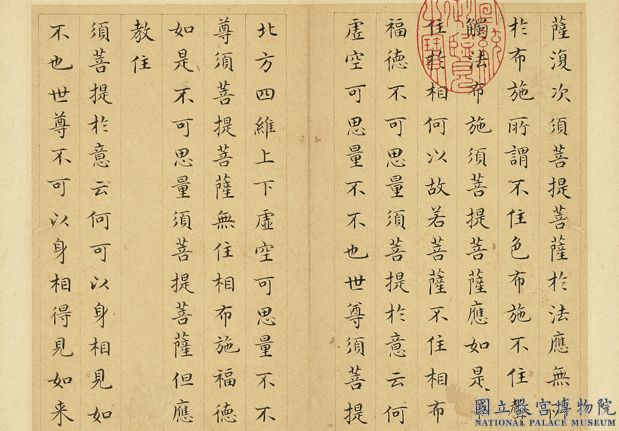 薩復次須菩提菩薩於法應無
於布施所謂不住色布施不住聲
觸法布施須菩提菩薩應如是
住於相何以故若菩薩不住相布
福德不可思量須菩提於意云何
虛空可思量不不也世尊須菩提
北方四維上下虛空可思量不不
尊須菩提菩薩無住相布施福德
如是不可思量須菩提菩薩但應
教住
須菩提於意云何可以身相見如
不也世尊不可以身相得見如来
國立故宮博物院
NATIONAL PALACE MUSEUM